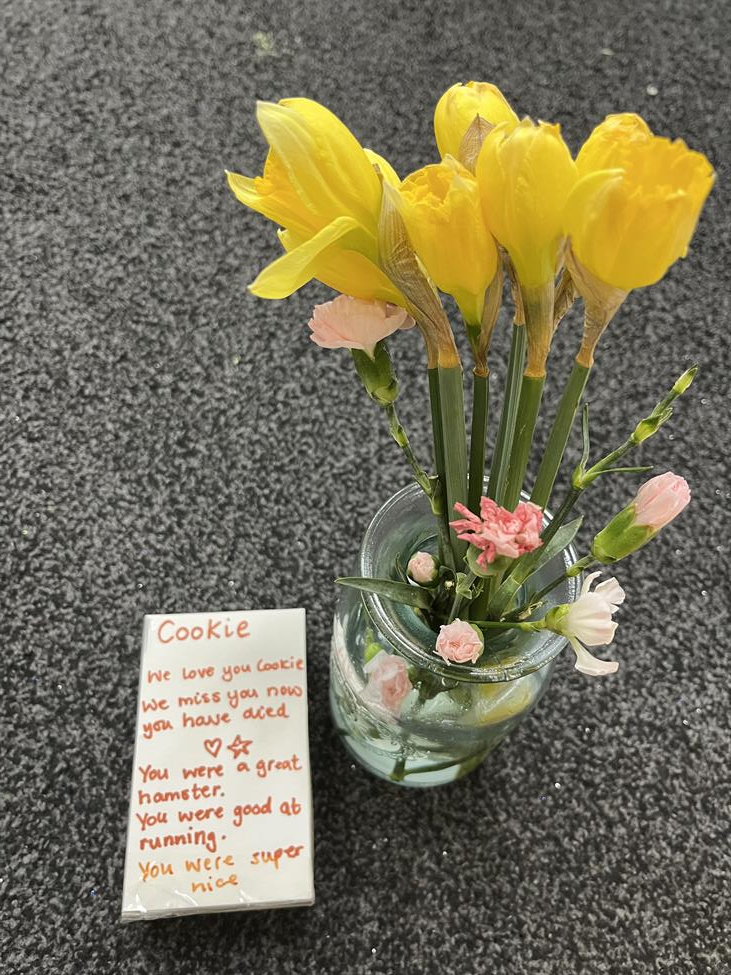 Cookie
We love you Cookie
We miss you now
you have died
You were a great
hamster.
You were good at
running.
You were super
nice